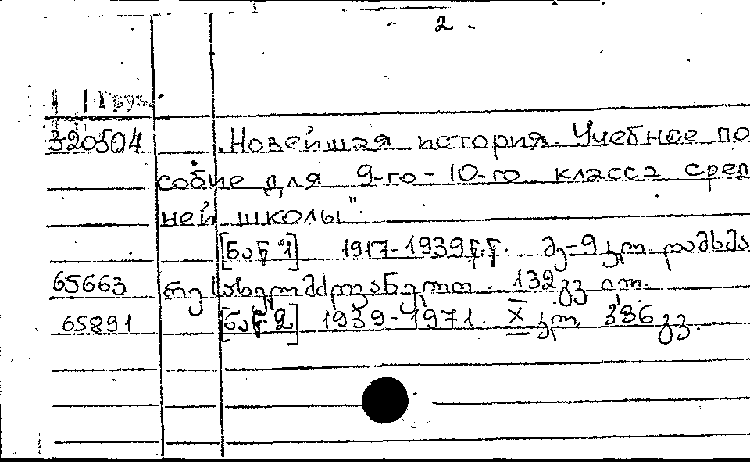 2
Груз.
320504 „Новейшая история. Учебное по
собие для 9-го-10-го класса сред
ней школы".
[ნაწ 1] 1917-1939 г.г. მე-9 კლ. დამხმა
65663 რე სახელმძღვანელო. 132 გვ
65891 [ნაწ. 2] 1939-1971. X კლ. 386 გვ.